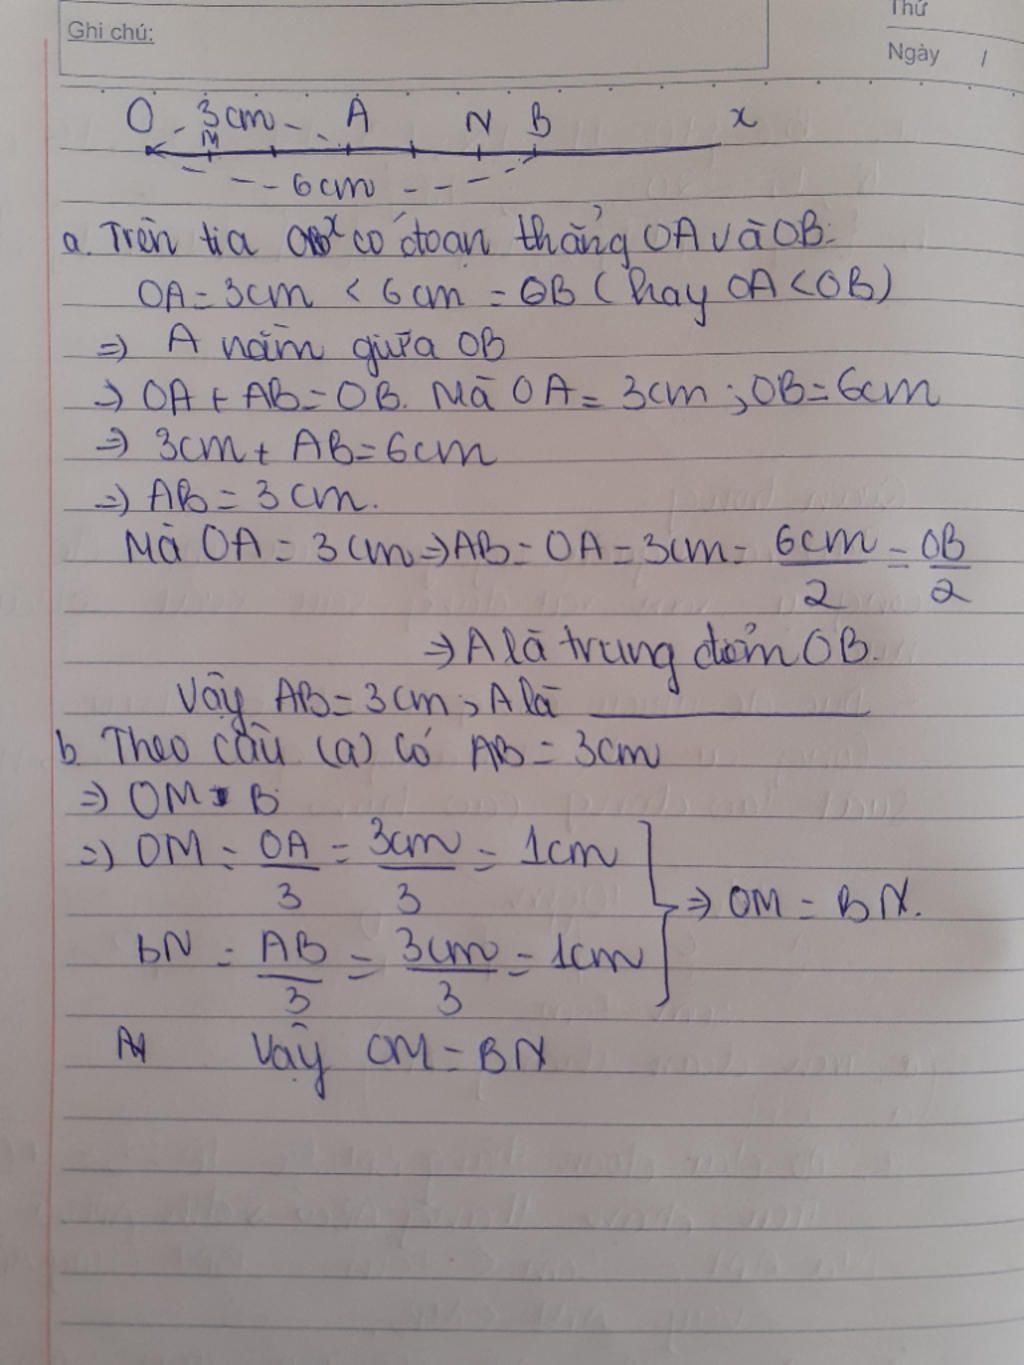 Ghi chú:
Thứ
Ngày /
O 3cm A N B x
M
6cm
a. Trên tia Ox có đoạn thẳng OA và OB.
OA = 3cm < 6cm = OB (hay OA < OB)
=> A nằm giữa OB
=> OA + AB = OB. Mà OA = 3cm ; OB = 6cm
=> 3cm + AB = 6cm
=> AB = 3cm.
Mà OA = 3cm => AB = OA = 3cm = 6cm/2 = OB/2
=> A là trung điểm OB.
Vậy AB = 3cm ; A là ________
b. Theo câu (a) có AB = 3cm
=> OM B
=> OM = OA/3 = 3cm/3 = 1cm
=> OM = BN.
BN = AB/3 = 3cm/3 = 1cm
Vậy OM = BN